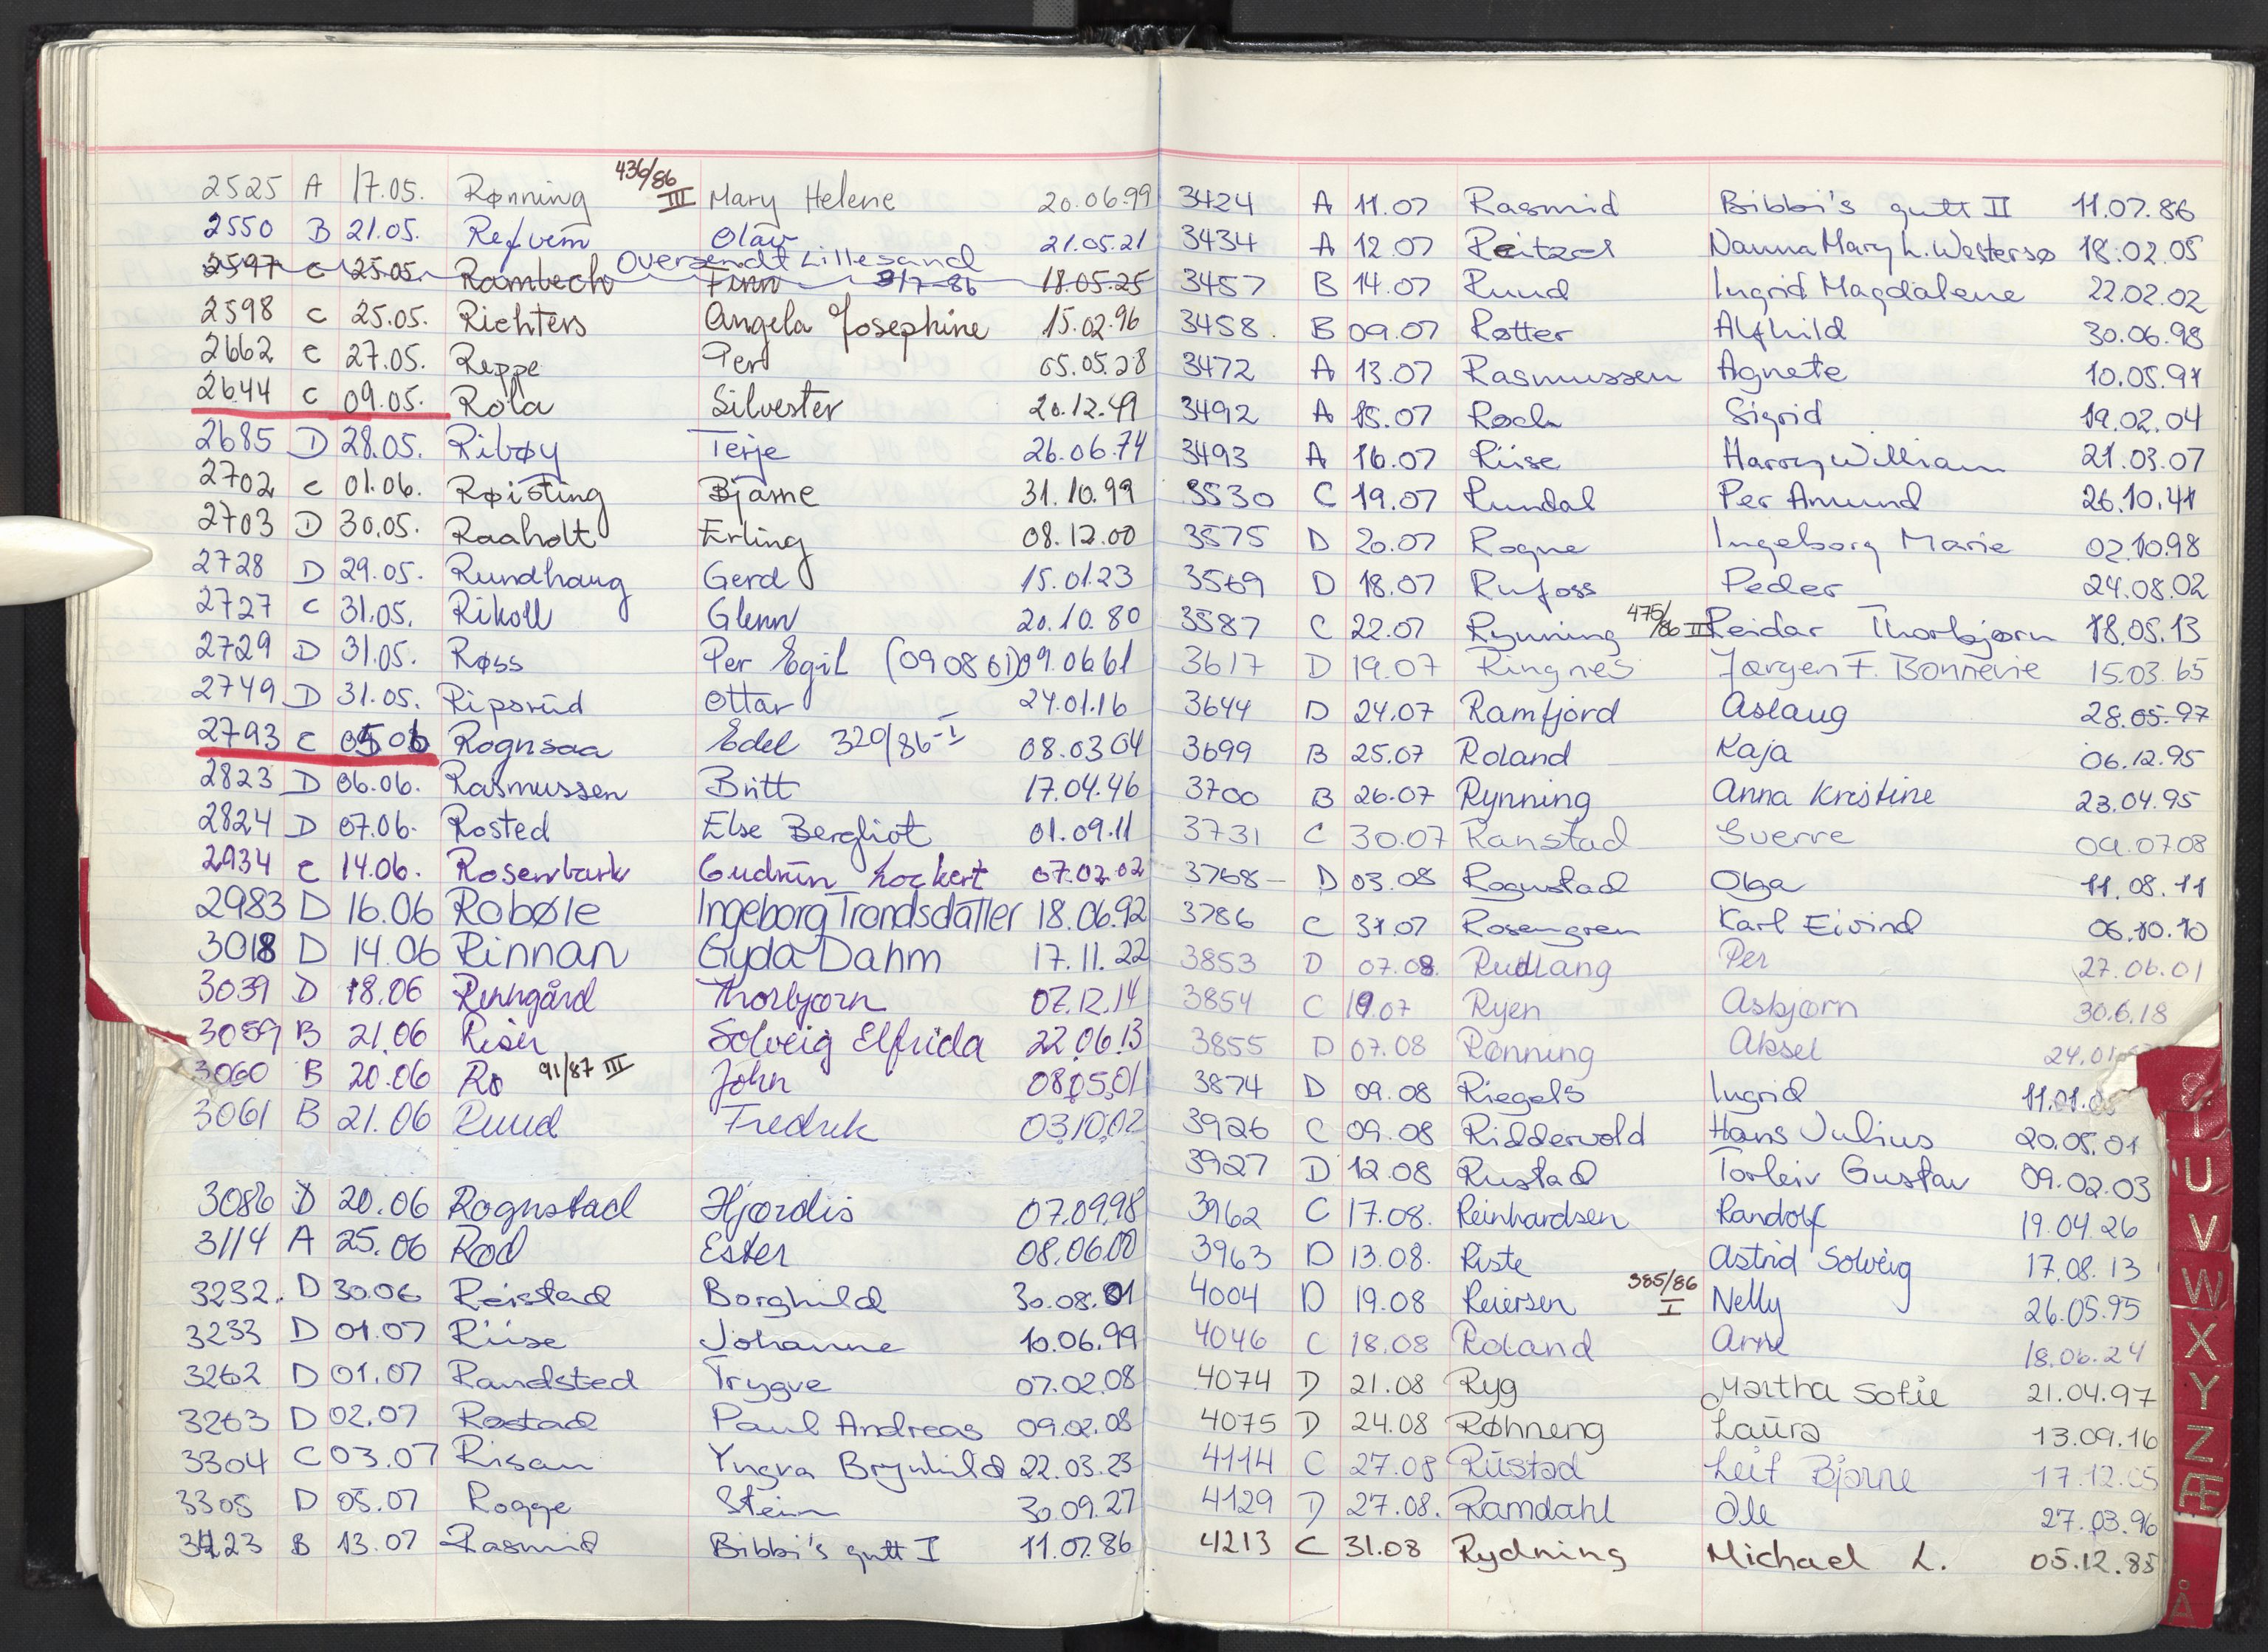 2525 A 17.05. Rønning 436/86 III Mary Helene 20.06.99
2550 B 21.05. Refvem Olav 21.05.21
Oversendt Lillesand
2597 C 25.05. Rambech Finn 3/7-86 18.05.25
2598 C 25.05. Richters Angela Josephine 15.02.96
2662 C 27.05. Reppe Per 05.05.28
2644 C 09.05. Rola Silvester 20.12.49
2685 D 28.05. Ribøy Terje 26.06.74
2702 C 01.06. Røisting Bjarne 31.10.99
2703 D 30.05. Raaholt Erling 08.12.00
2728 D 29.05. Rundhaug Gerd 15.01.23
2727 C 31.05. Rikoll Glenn 20.10.80
2729 D 31.05. Røss Per Egil (090861) 09.06 61
2749 D 31.05. Ripsrud Ottar 24.01.16
2793 C 05 06 Rognsaa Edel 320/86-I 08.03 04
2823 D 06.06. Rasmussen Britt 17.04.46
2824 D 07.06. Rosted Else Bergliot 01.09.11
2934 C 14.06. Rosenbark Gudrun Lockert 07.02.02
2983 D 16.06 Robøle Ingeborg Trondsdatter 18.06.92
3018 D 14.06 Rinnan Gyda Dahm 17.11.22
3039 D 18.06 Renngård Thorbjørn 07.12.14
3059 B 21.06 Riser Solveig Elfrida 22.06.13
3060 B 20.06 Rø 91/87 III John 08.05.01
3061 B 21.06 Ruud Fredrik 03.10.02
3086 D 20.06 Rognstad Hjørdis 07.09.98
3114 A 25.06 Rød Ester 08.06.00
3232. D 30.06 Reistad Borghild 30.08.01
3233 D 01.07 Riise Johanne 10.06.99
3262 D 01.07 Randsted Trygve 07.02.08
3263 D 02.07 Røstad Paul Andreas 09.02.08
3304 C 03.07 Risan Yngva Brynhild 22.03.23
3305 D 05.07 Rogge Stein 30.09.27
3423 B 13.07 Rasmid Bibbi's gutt I 11.07.86
3424 A 11.07 Rasmid Bibbi's gutt II 11.07.86
3434 A 12.07 Reitzel Nanna Mary L. Westersø 18.02.05
3457 B 14.07 Ruud Ingrid Magdalene 22.02.02
3458. B 09.07 Røtter Alfhild 30.06.98
3472 A 13.07 Rasmussen Agnete 10.05.91
3492 A 15.07 Røch Sigrid 19.02.04
3493 A 16.07 Riise Harry William 21.03.07
3530 C 19.07 Rundal Per Amund 26.10.41
3575 D 20.07 Rogne Ingeborg Marie 02.10.98
3569 D 18.07 Rufoss Peder 24.08.02
3587 C 22.07 Rynning 475/86 II Reidar Thorbjørn 18.05.13
3617 D 19.07 Ringnes Jørgen F. Bonnevie 15.03.65
3644 D 24.07 Ramfjord Aslaug 28.05.97
3699 B 25.07 Roland Kaja 06.12.95
3700 B 26.07 Rynning Anna Kristine 23.04.95
3731 C 30.07 Ranstad Sverre 09.07.08
3768 - D 03.08 Rognstad Olga 11.08.11
3786 C 31.07 Rosengren Karl Eivind 06.10.10
3853 D 07.08. Rudlang Per 27.06.01
3854 C 19.07 Ryen Asbjørn 30.6.18
3855 D 07.08 Rønning Aksel 24.01
3874 D 09.08 Riegels Ingrid 11.01.
3926 C 09.08 Riddervold Hans Julius 20.05.01
3927 D 12.08 Rustad Torleiv Gustav 09.02.03
3962 C 17.08. Reinhardsen Randolf 19.04.26
3963 D 13.08. Riste Astrid Solveig 17.08.13
4004 D 19.08 Reiersen 385/86 I Nelly 26.05.95
4046 C 18.08 Roland Arne 18.06.24
4074 D 21.08 Ryg Martha Sofie 21.04.97
4075 D 24.08 Røhneng Laura 13.09.16
4114 C 27.08 Rustad Leif Bjarne 17.12.05
4129 D 27.08. Ramdahl Ole 27.03.96
4213 C 31.08 Rydning Michael L. 05.12.85
U
V
W
X
Y
Z
Æ
Å